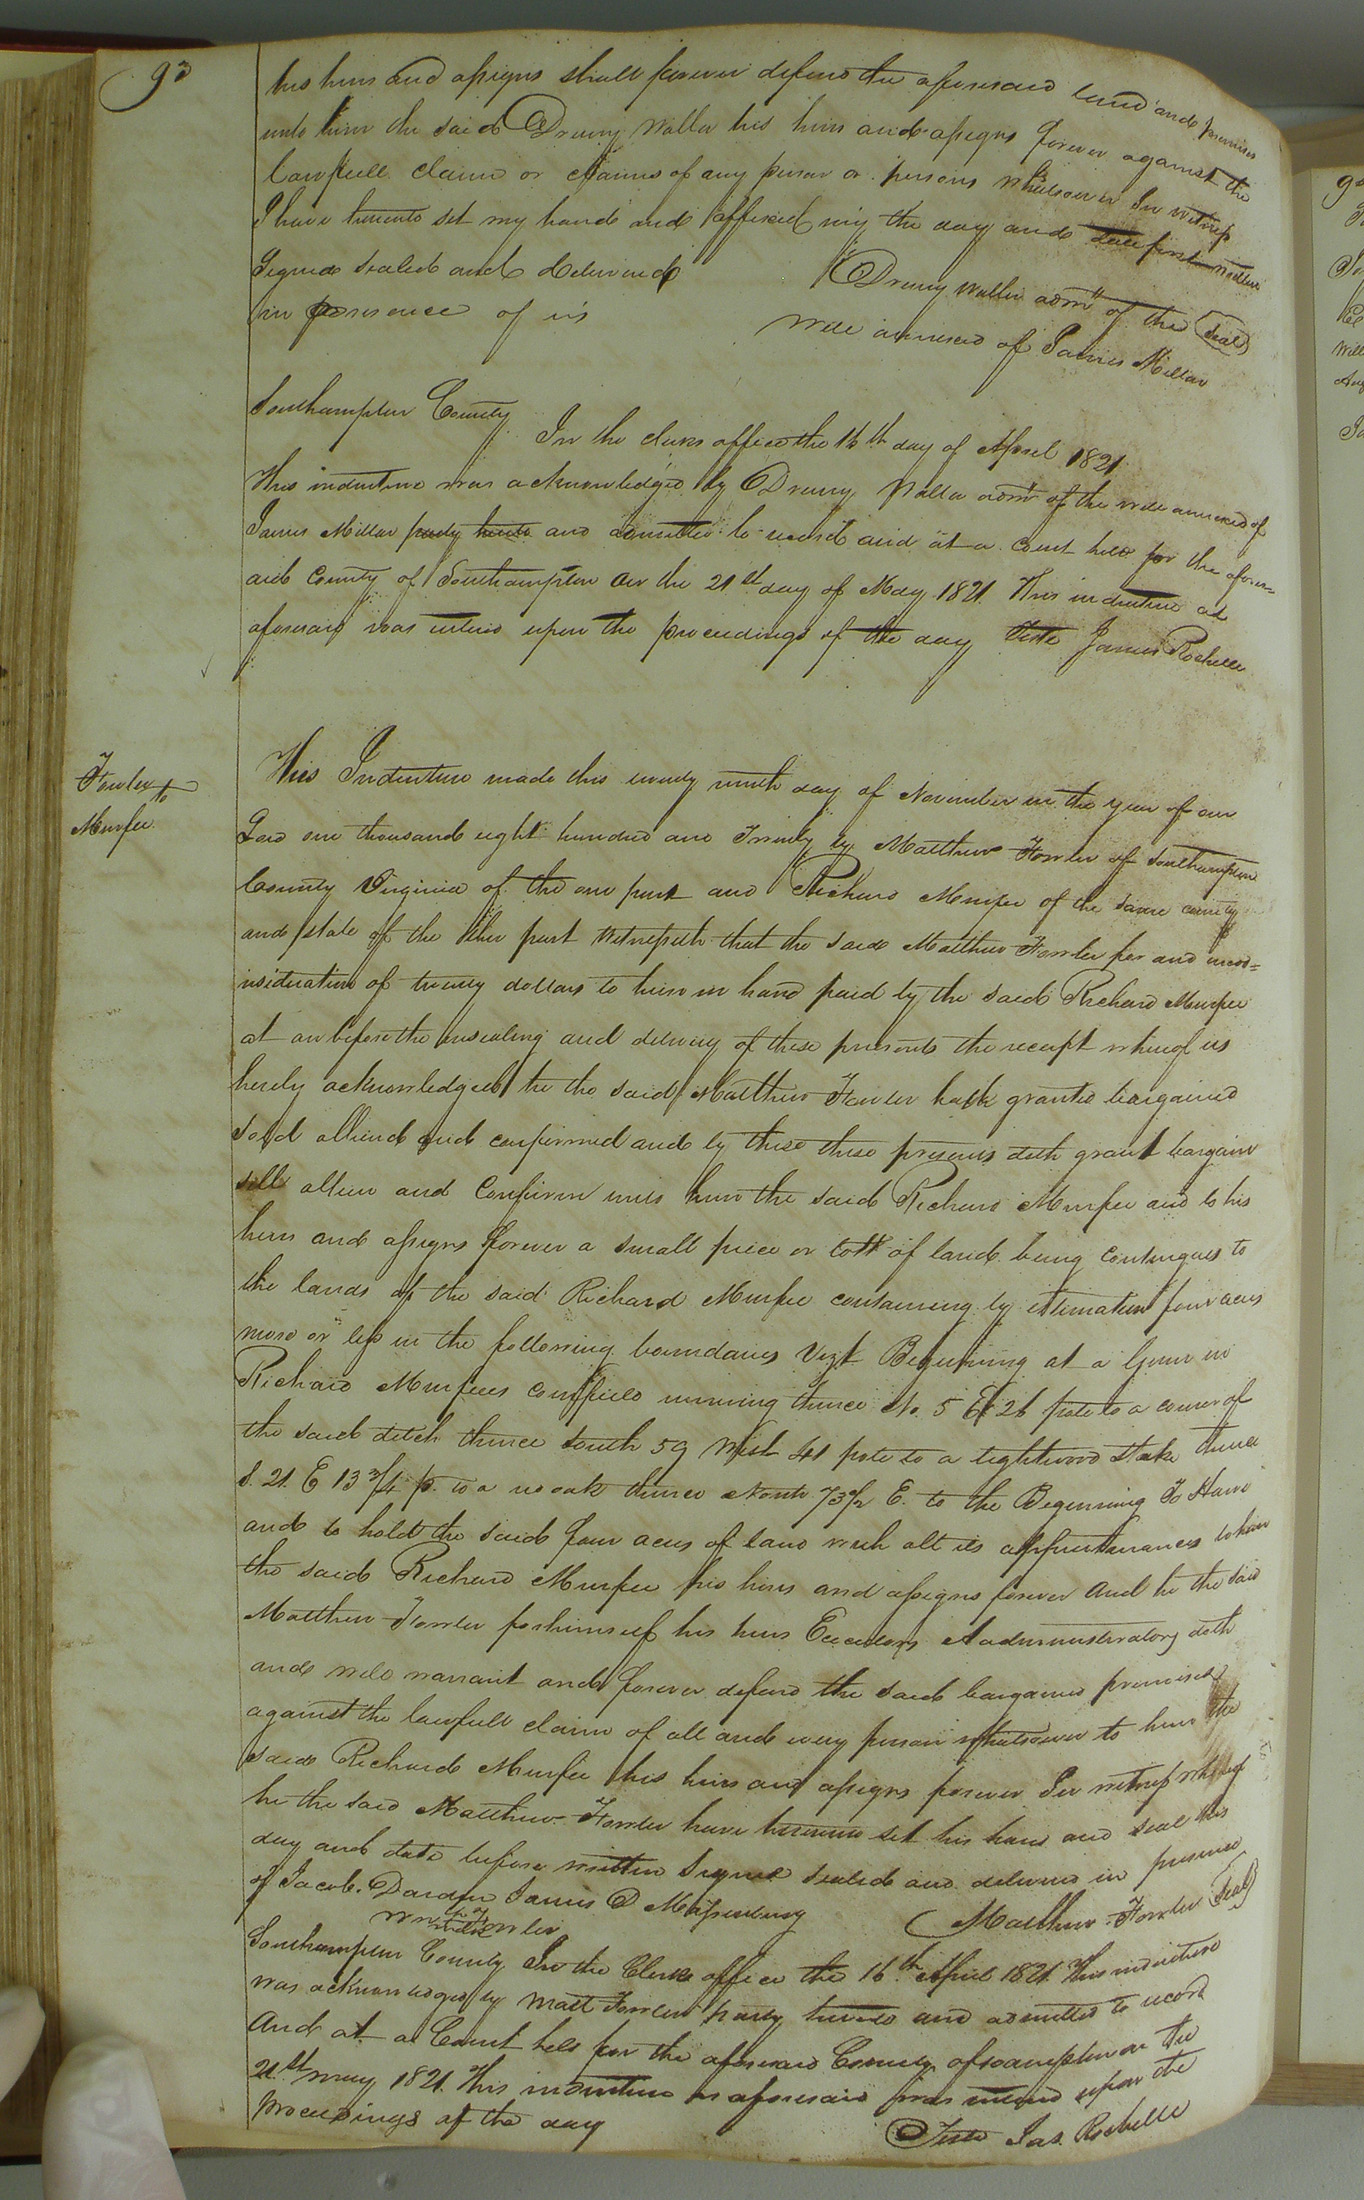 92
his heirs and assigns shall forever defend the aforesaid land and premises
unto him the said Drewry Waller his heirs and assigns forever against the
lawfull claim or claims of any person or persons whatsoever In witness
I have hereunto set my hand and affixed my the day and date first written
Signed sealed and delivered Drewry Waller admr of the Seal
in presence of us will annexed of James Millar
Southampton County
In the clerks office the 16th day of April 1821
This indenture was acknowledged by Drewry Waller admr of the will annexed of
James Millar party hereto and admitted to record and at a court held for the afores=
aid County of Southampton on the 21st day of May 1821 This indenture as
aforesaid was entered upon the proceedings of the day Teste James Rochelle
Fowler to
Murfee
This Indenture made this twenty ninth day of November in the year of our
Lord one thousand eight hundred and Twenty by Matthew Fowler of Southampton
County Virginia of the one part and Richard Murfee of the same county
and state of the other part Witnesseth that the said Matthew Fowler for and in con=
nsideration of twenty dollars to him in hand paid by the said Richard Murfee
at or before the ensealing and delivery of these presents the receipt whereof is
hereby acknowledged he the said Matthew Fowler hath granted bargained
sold aliend and confirmed and by these these presents doth grant bargain
sell alien and Confirm unto him the said Richard Murfee and to his
heirs and assigns forever a small piece or lott of land being contingues to
the lands of the said Richard Murfee containing by estimation four acres
more or less in the following boundaries Vizt Beginning at a Gum in
Richard Murfees cornfield running thence No. 5 E 26 pole to a corner of
the said ditch thence South 59 West 41 pole to a lightwood stake thence
S. 21. E 13 3/4 p. to a red oak thence North 73 1/2 E. to the Beginning To Have
and to hold the said four acres of land with all its appurtenances to him
the said Richard Murfee his heirs and assigns forever And he the said
Matthew Fowler for himself his heirs Executors & administrators doth
and will warrant and forever defend the said bargained premises
against the lawfull claim of all and every person whatsoever to him the
said Richard Murfee his heirs and assigns forever In witness whereof
he the said Matthew Fowler have hereunto set his hand and seal this
day and date before written Signed sealed and delivered in presence
of Jacob. Darden James D Massenburg Matthew Fowler Seal
Wm Fowler
Southampton County In the Clerks office the 16th April 1821. This indenture
was acknowledged by Matt Fowler party hereto and admitted to record
And at a Court held for the aforesaid County of soampton on the
21st may 1821. This indenture as aforesaid was entered upon the
proceedings of the day Teste Jas. Rochelle